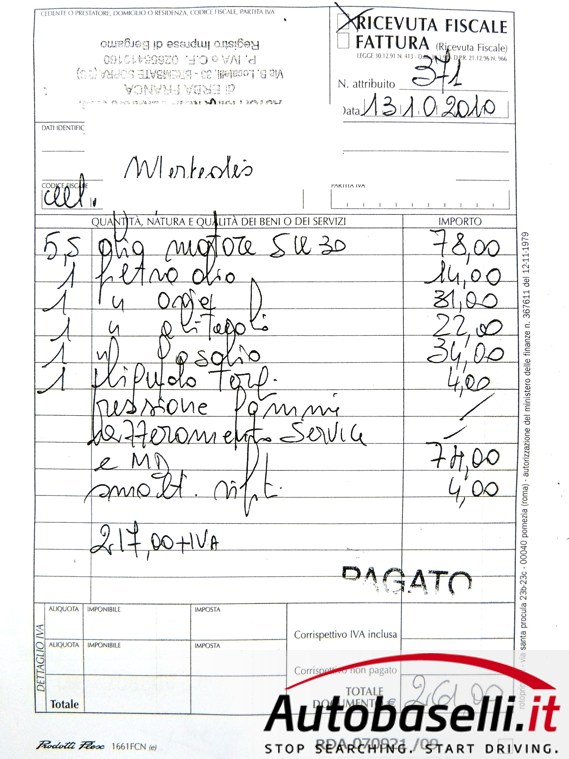 CEDENTE O PRESTATORE, DOMICILIO O RESIDENZA, CODICE FISCALE, PARTITA IVA
RICEVUTA FISCALE
FATTURA (Ricevuta Fiscale)
di ERBA FRANCA
Via B. Locatelli, 33 - BREMBATE SOPRA (BG)
Registro Imprese di Bergamo
N. attribuito 371
Data 13.10.2010
DATI IDENTIFIC
Mercedes
CODICE FISCALE
PARTITA IVA
QUANTITÀ, NATURA E QUALITÀ DEI BENI O DEI SERVIZI IMPORTO
5,5 olio motore 5W30 78,00
1 filtro olio 14,00
1 " 31,00
1 " 22,00
1 " gasolio 34,00
1 liquido Terg. 4,00
pressione gomme /
azzeramento SERVICE /
e MD 74,00
smalt. rift. 4,00
217,00+IVA
PAGATO
DETTAGLIO IVA
ALIQUOTA IMPONIBILE IMPOSTA
Corrispettivo IVA inclusa
ALIQUOTA IMPONIBILE IMPOSTA
Corrispettivo non pagato
Totale
TOTALE DOCUMENTO €
Autobaselli.it
STOP SEARCHING. START DRIVING.
Prodotti Flex 1661FCN (e)
via santa procula 23b-23c - 00040 pomezia (roma) - autorizzazione del ministero delle finanze n. 367611 del 12-11-1979